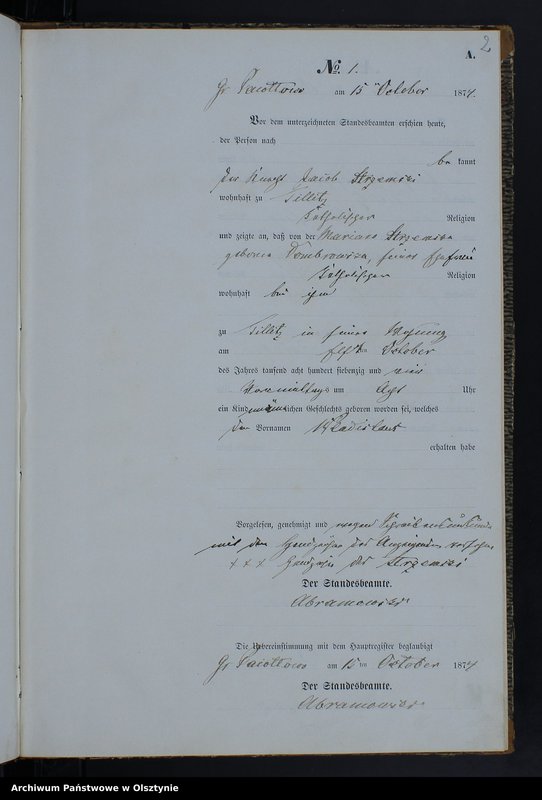 2
A.
No. 1.
Gr. Pacoltowo am 15 October 1874.
Vor dem unterzeichneten Standesbeamten erschien heute,
der Person nach
be kannt
der Knecht Jacob Strzemski
wohnhaft zu Tillitz
katholischer Religion
und zeigte an, daß von der Marianna Strzemska
geborene Dombrowska, seiner Ehefrau
katholischer Religion
wohnhaft bei ihm
zu Tillitz in seiner Wohnung
am elften October
des Jahres tausend acht hundert siebenzig und vier
Vormittags um Acht Uhr
ein Kind männlichen Geschlechts geboren worden sei, welches
den Vornamen Wladislaus
erhalten habe
Vorgelesen, genehmigt und wegen Schreibensunkunde
mit dem Handzeichen des Anzeigenden versehen
+ + + Handzeichen des Strzemski
Der Standesbeamte.
Abramowski
Die Uebereinstimmung mit dem Hauptregister beglaubigt
Gr. Pacoltowo am 15ten October 1874
Der Standesbeamte.
Abramowski
Archiwum Państwowe w Olsztynie